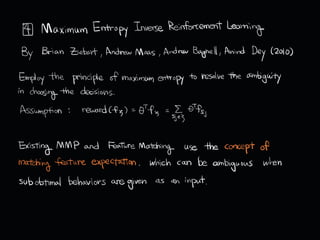 [4] Maximum Entropy Inverse Reinforcement Learning
By Brian Ziebart, Andrew Maas, Andrew Bagnell, Anind Dey (2010)
Employ the principle of maximum entropy to resolve the ambiguity
in choosing the decisions.
Assumption : reward(f_ζ) = θᵀf_ζ = Σ_{s_j∈ζ} θᵀf_{s_j}
Existing MMP and Feature Matching use the concept of
matching feature expectation, which can be ambiguous when
suboptimal behaviors are given as an input.